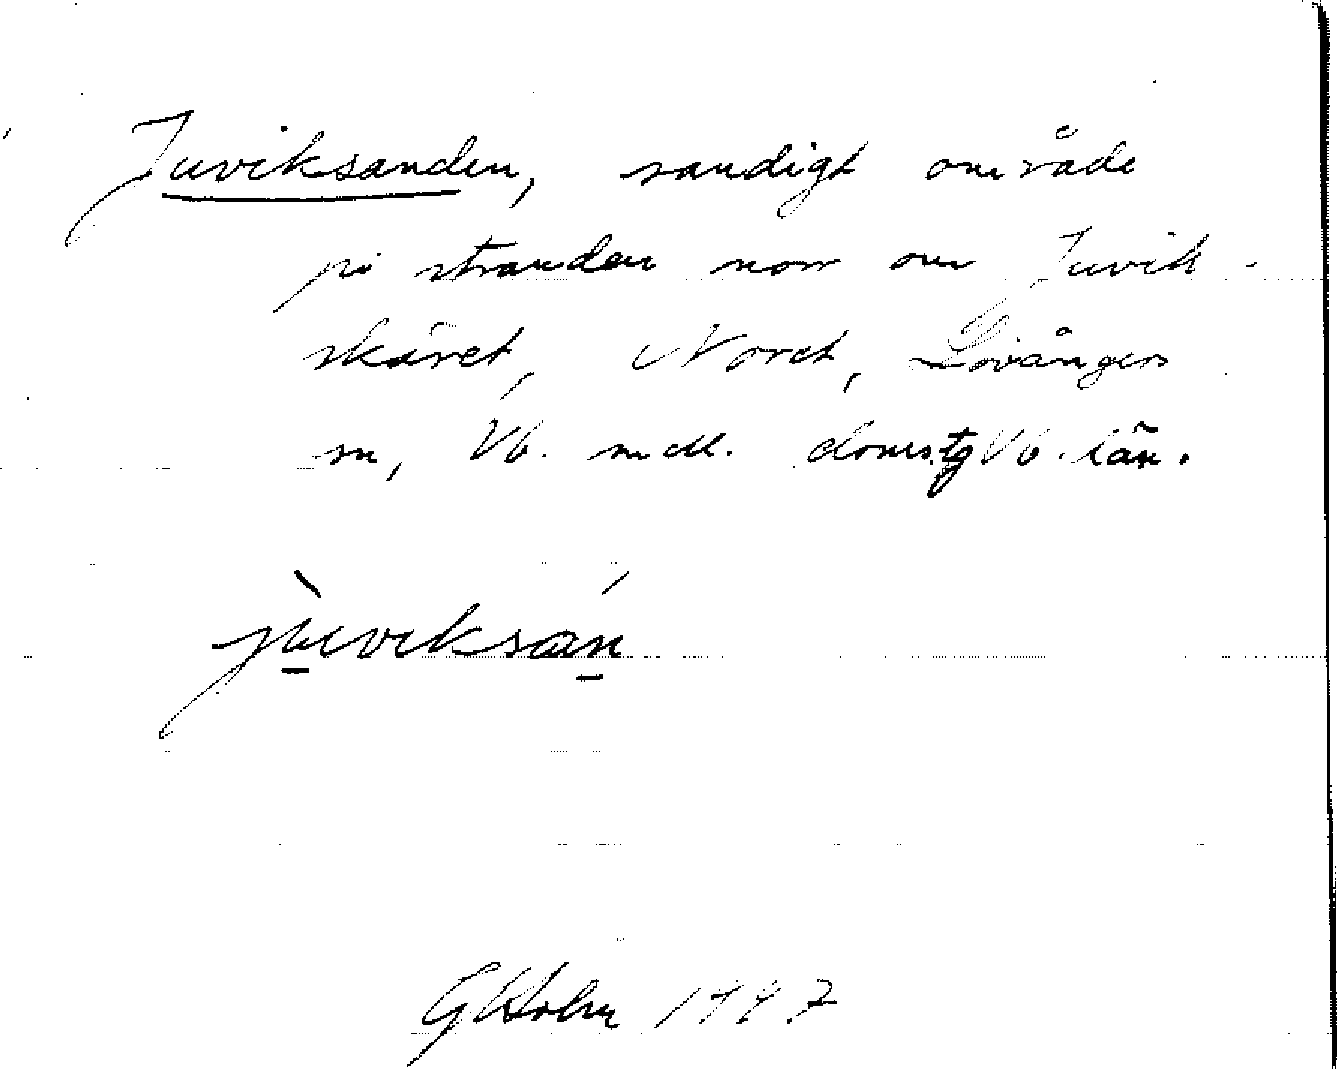 Juviksanden, sandigt område
på stranden norr om Juvik-
skäret, Noret, Lövångers
sn, Vb. mell. doms.tg Vb. län.
jùviksán
G Holm 1947